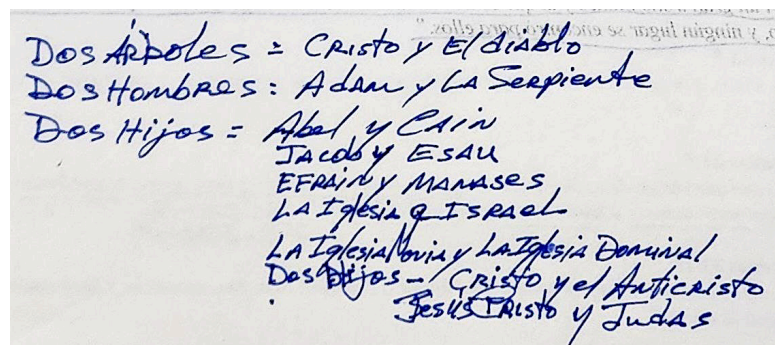 o, y ningún lugar se encontró para ellos."
Dos Árboles = Cristo y El diablo
Dos Hombres : Adam y La Serpiente
Dos Hijos = Abel y Cain
Jacob y Esau
Efrain y Manases
La Iglesia e Israel
La Iglesia Novia y La Iglesia Dominal
Dos Hijos - Cristo y el Anticristo
JesusCristo y Judas